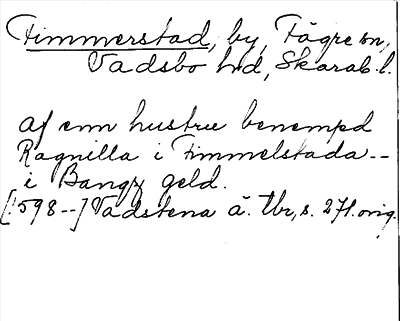 Timmerstad, by, Fägre sn,
Vadsbo hd, Skarab. l.
af enn hustru benempd
Ragnilla i Timmelstada--
i Bangz geld.
[1598--] Vadstena ä. tbr, s. 271. orig.